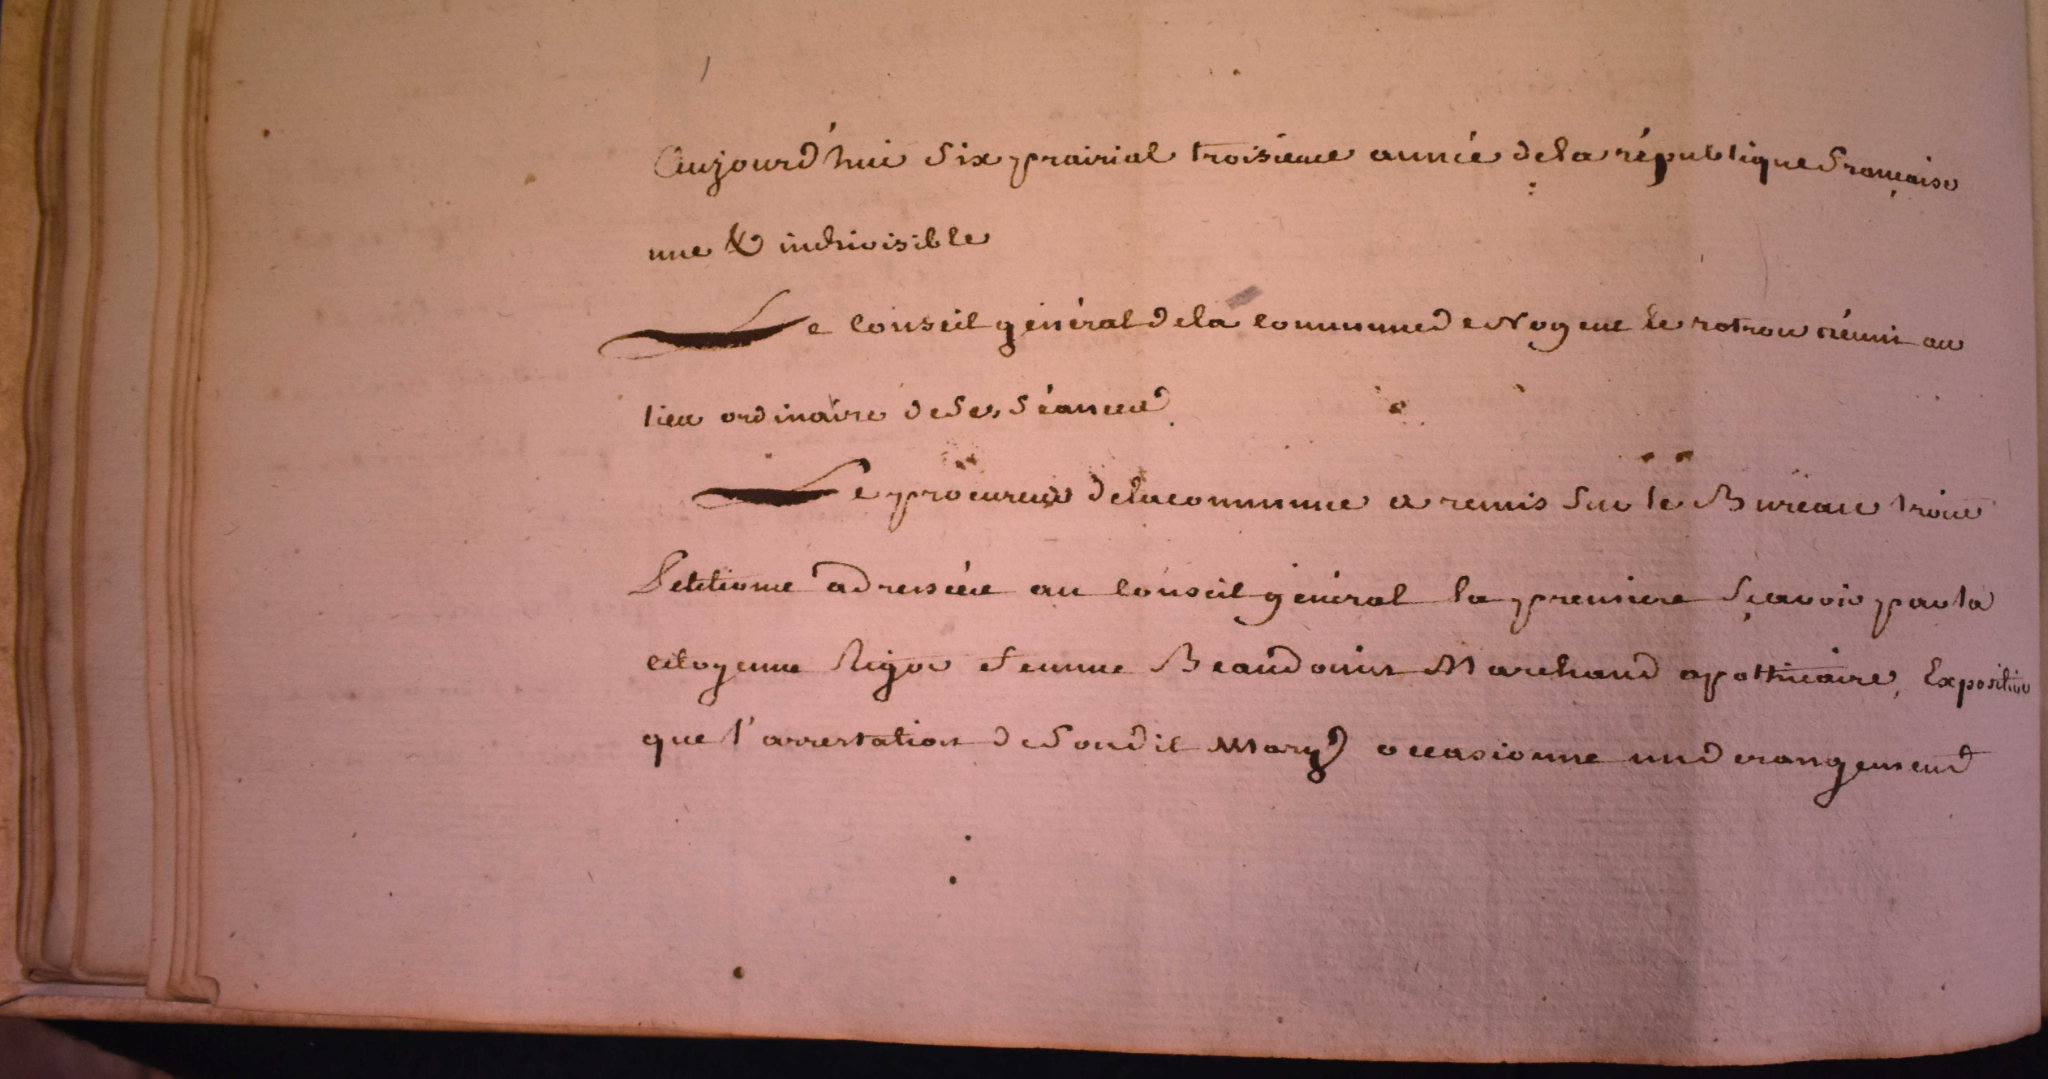 Aujourd'hui six prairial troisieme année de la république française
une & indivisible
Le Conseil général de la commune de Nogent le rotrou réuni au
lieu ordinaire de ses séances
Le procureur de la commune a remis sur le Bureau trois
Petitions adressées au Conseil général la premiere sçavoir par la
citoyenne femme Beaudouin Marchand apothicaire, Expositive
que l'arrestation de son dit Mary occasionne un derangement